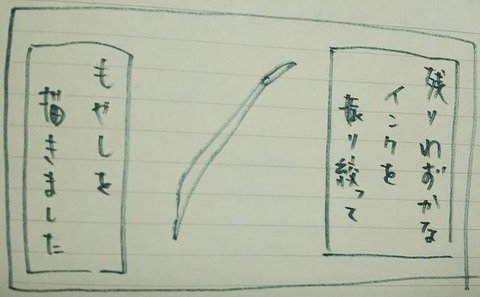 残りわずかな
インクを
振り絞って
もやしを
描きました